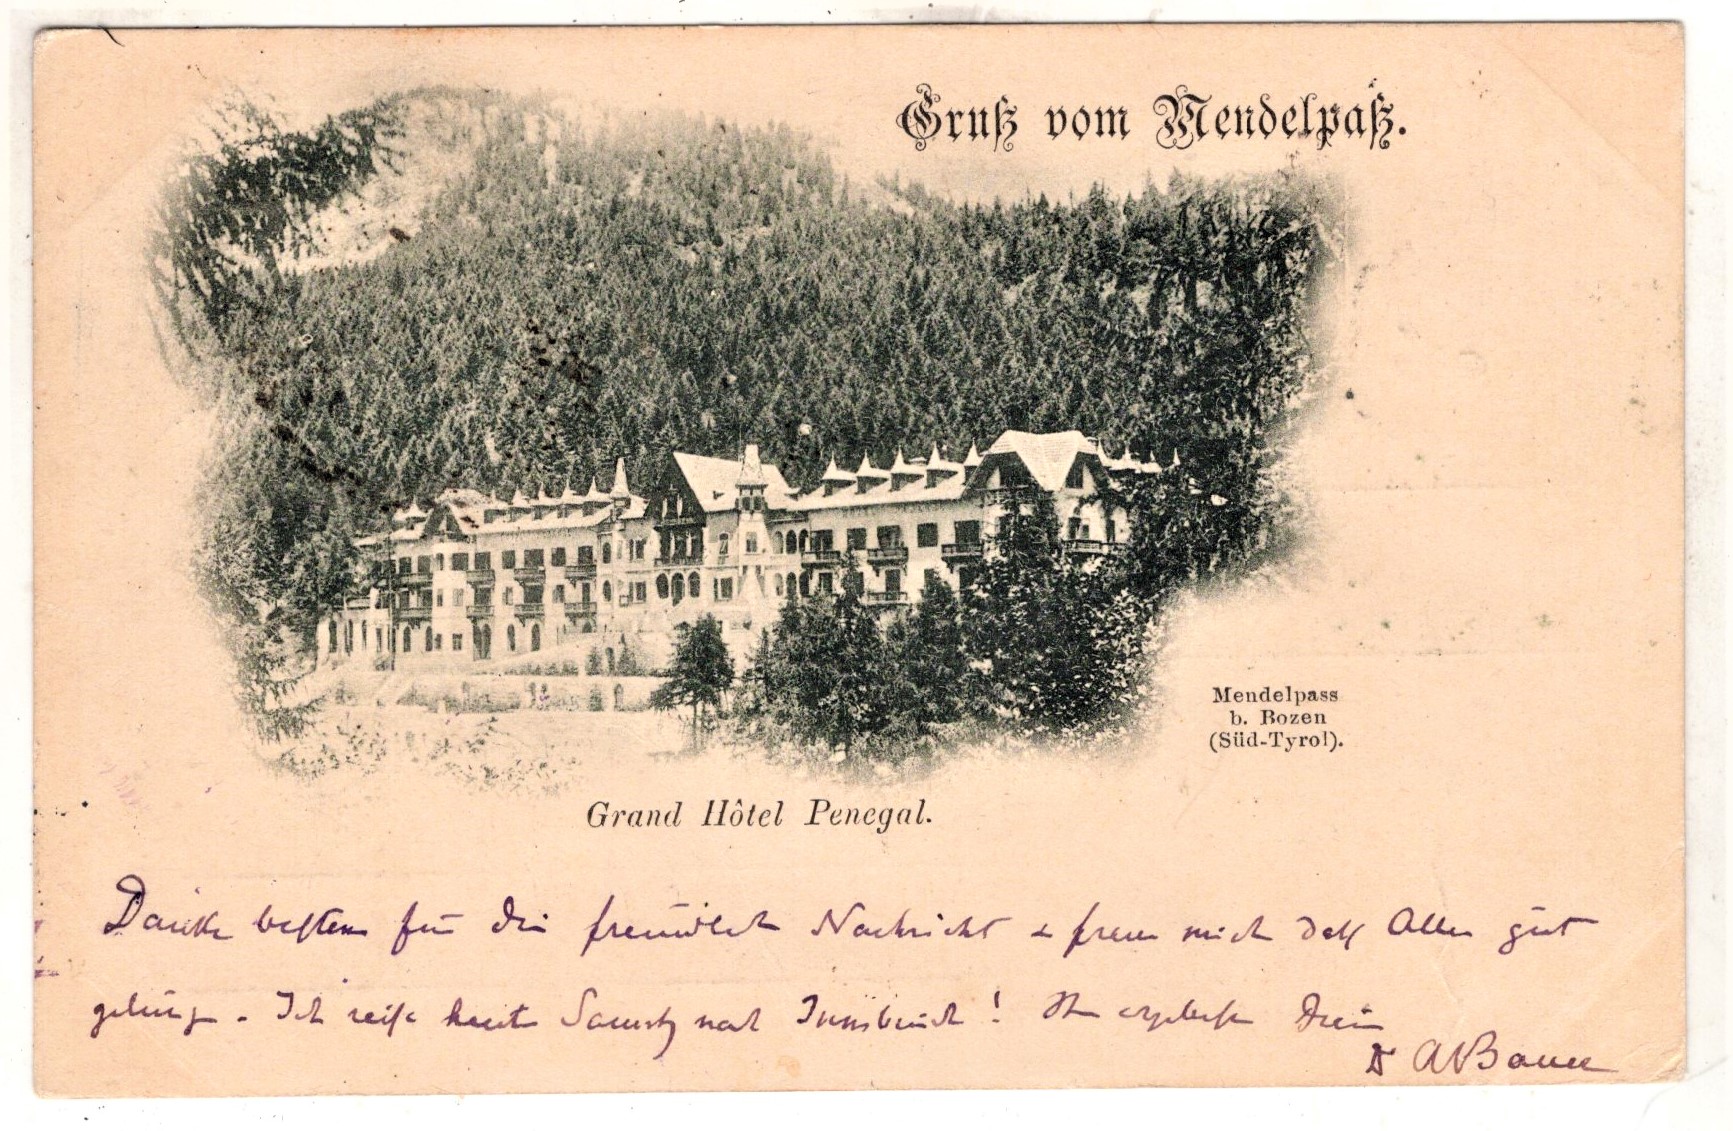 Gruß vom Mendelpaß.
Mendelpass
b. Bozen
(Süd-Tyrol).
Grand Hôtel Penegal.
Danke bestens für die freundlich Nachricht + freue mich daß Alles gut
gelungen. Ich reise heute Samstg nach Innsbruck! Ihr ergebenster
Dr A Bauer